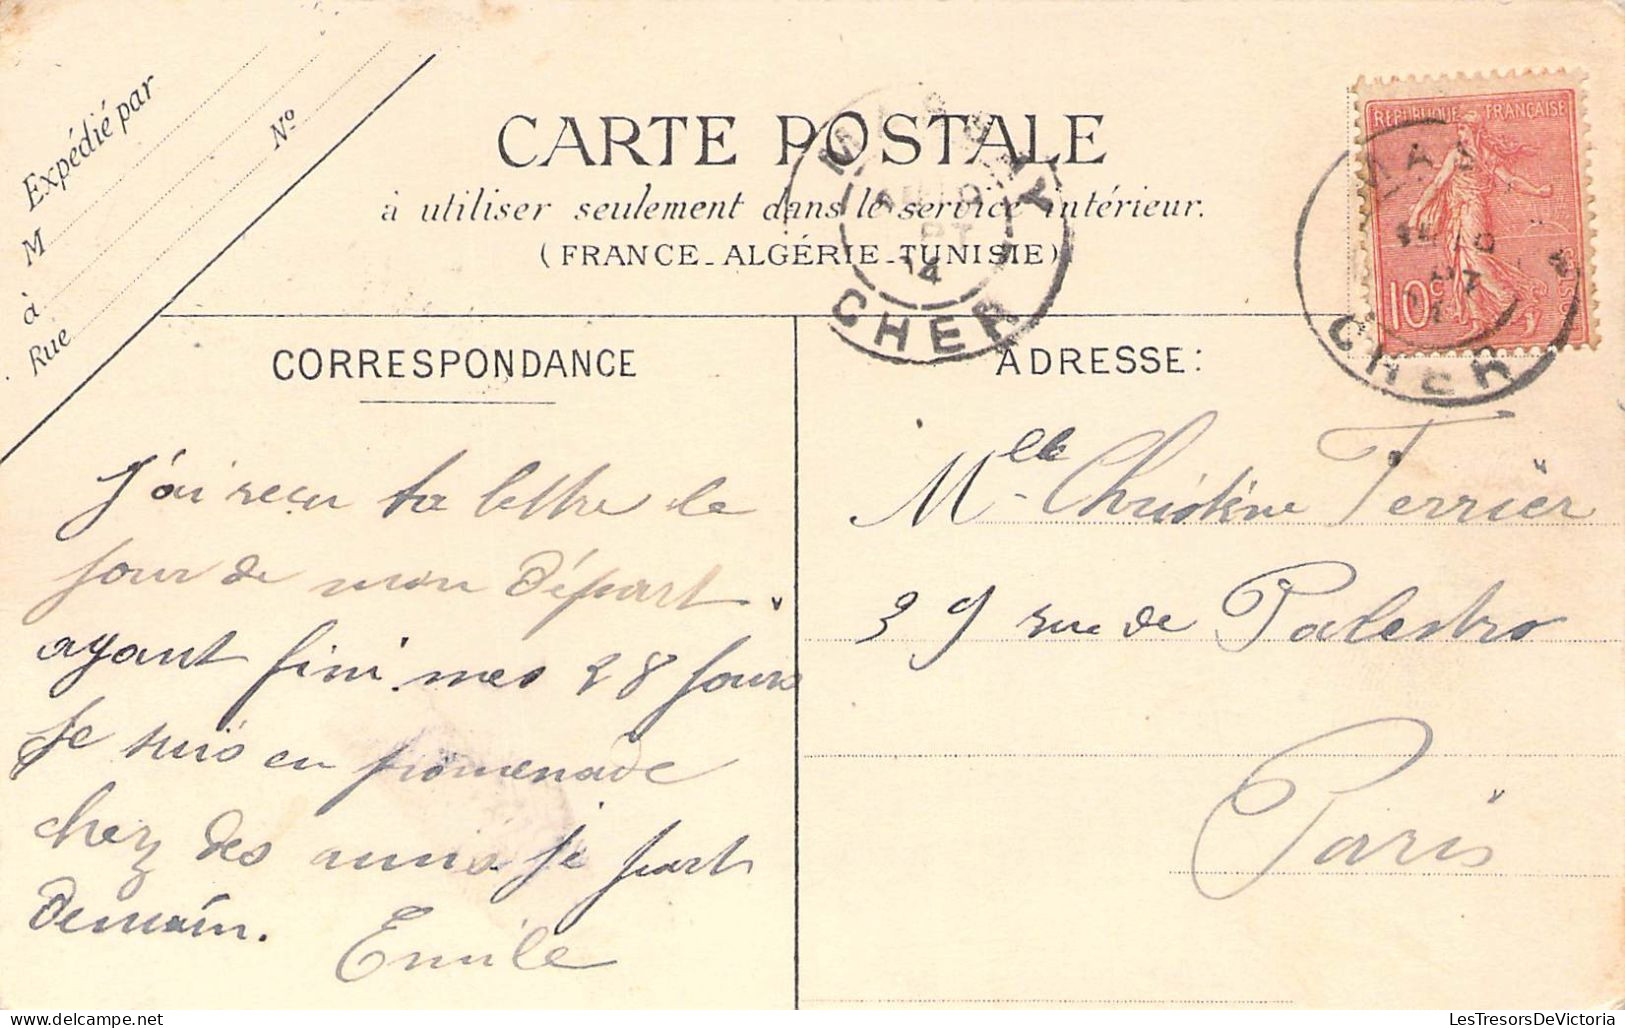 Expédié par
M
à
Rue
Nº
CARTE POSTALE
à utiliser seulement dans le service intérieur.
(FRANCE_ALGÉRIE_TUNISIE)
CHER
RÉPUBLIQUE FRANÇAISE
10c
CHER
CORRESPONDANCE
J'ai reçu ta lettre le
jour de mon départ.
ayant fini mes 28 jours
je suis en promenade
chez des amis je part
demain.
Emile
ADRESSE:
Mlle Christine Terrier
39 rue de Palestro
Paris
LesTresorsDeVictoria